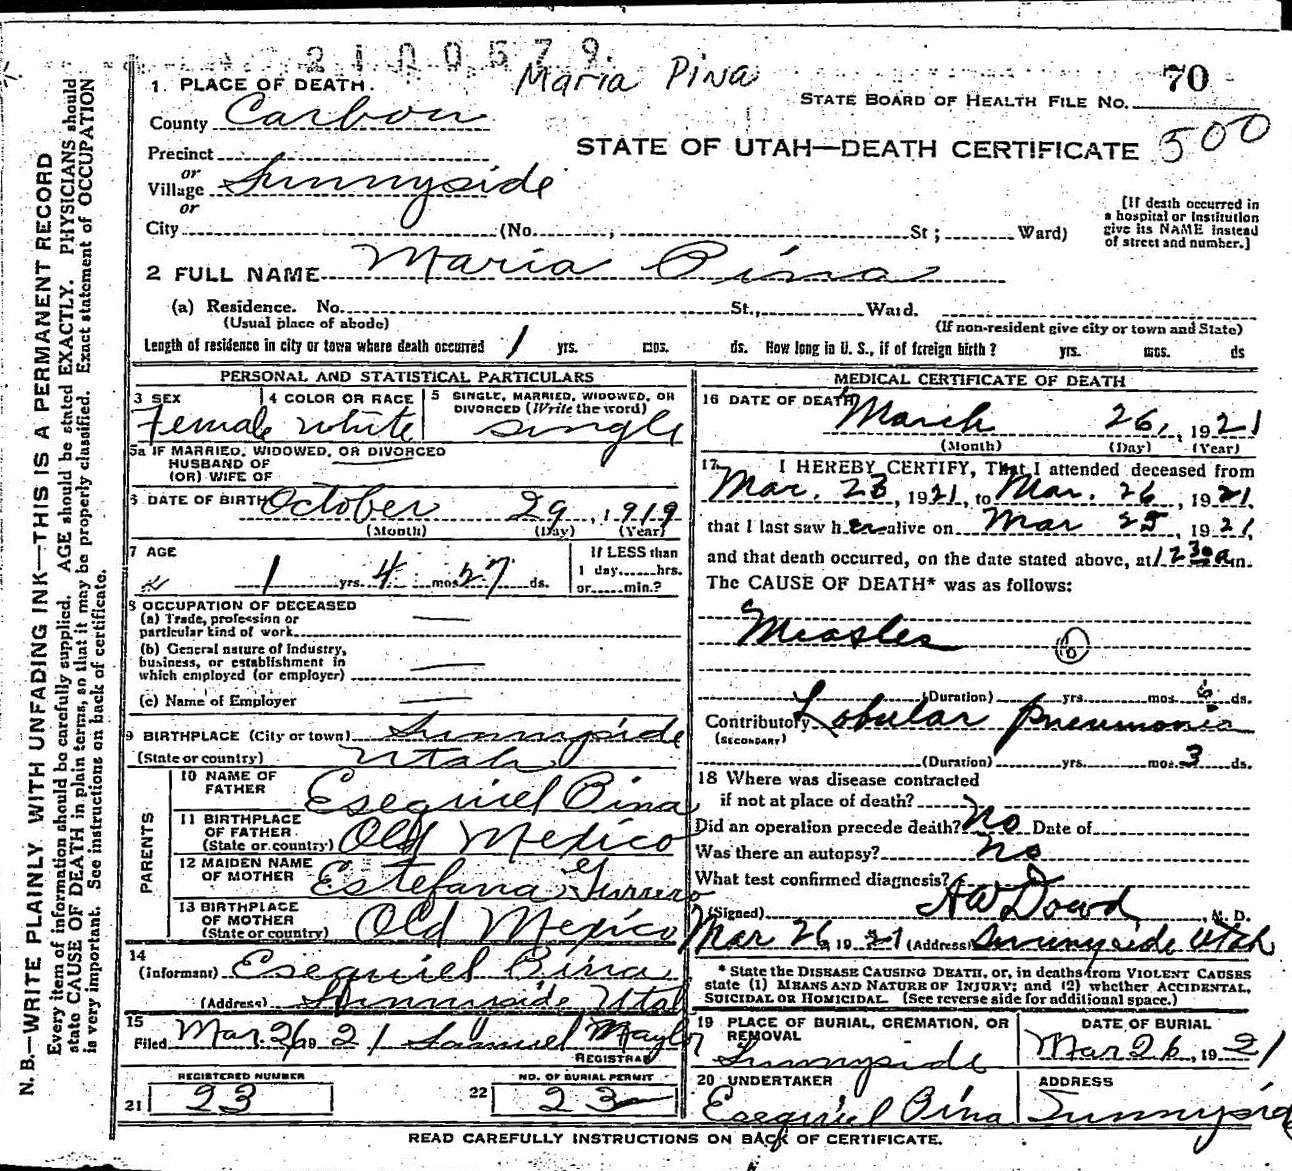 2100579.
Maria Pina
70
1 PLACE OF DEATH.
STATE BOARD OF HEALTH FILE NO.
County Carbon
500
STATE OF UTAH—DEATH CERTIFICATE
Precinct
or
Village Sunnyside
or
City (No. , St ; Ward)
[If death occurred in
a hospital or institution
give its NAME instead
of street and number.]
2 FULL NAME Maria Pina
(a) Residence. No. St., Ward.
(Usual place of abode)
(If non-resident give city or town and State)
Length of residence in city or town where death occurred 1 yrs. mos. ds. How long in U. S., if of foreign birth? yrs. mos. ds
PERSONAL AND STATISTICAL PARTICULARS
3 SEX Female
4 COLOR OR RACE white
5 SINGLE, MARRIED, WIDOWED, OR
DIVORCED (Write the word) single
5a IF MARRIED, WIDOWED, OR DIVORCED
HUSBAND OF
(OR) WIFE OF
6 DATE OF BIRTH October 29, 1919
(Month) (Day) (Year)
7 AGE
1 yrs. 4 mos 27 ds.
If LESS than
1 day......hrs.
or.....min.?
8 OCCUPATION OF DECEASED
(a) Trade, profession or
particular kind of work
(b) General nature of industry,
business, or establishment in
which employed (or employer)
(c) Name of Employer
9 BIRTHPLACE (City or town) Sunnyside
(State or country) Utah
PARENTS
10 NAME OF
FATHER Esequiel Pina
11 BIRTHPLACE
OF FATHER
(State or country) Old Mexico
12 MAIDEN NAME
OF MOTHER Estefana
13 BIRTHPLACE
OF MOTHER
(State or country) Old Mexico
14
(Informant) Esequiel Pina
(Address) Sunnyside Utah
15
Filed Mar. 26 1921 Samuel
REGISTRAR
REGISTERED NUMBER
21 23
NO. OF BURIAL PERMIT
22 23
MEDICAL CERTIFICATE OF DEATH
16 DATE OF DEATH
March 26, 1921
(Month) (Day) (Year)
17 I HEREBY CERTIFY, That I attended deceased from
Mar. 23, 1921, to Mar. 26, 1921,
that I last saw her alive on Mar 25, 1921,
and that death occurred, on the date stated above, at 1230a m.
The CAUSE OF DEATH* was as follows:
Measles
6
(Duration) yrs. mos. 6 ds.
Contributory Lobular pneumonia
(SECONDARY)
(Duration) yrs. mos. 3 ds.
18 Where was disease contracted
if not at place of death?
Did an operation precede death? No Date of
Was there an autopsy? no
What test confirmed diagnosis?
(Signed) AW Dowd, M. D.
Mar 26, 1921 (Address) Sunnyside Utah
* State the DISEASE CAUSING DEATH, or, in deaths from VIOLENT CAUSES
state (1) MEANS AND NATURE OF INJURY; and (2) whether ACCIDENTAL,
SUICIDAL OR HOMICIDAL. (See reverse side for additional space.)
19 PLACE OF BURIAL, CREMATION, OR
REMOVAL
Sunnyside
DATE OF BURIAL
Mar 26, 1921
20 UNDERTAKER
Esequiel Pina
ADDRESS
Sunnyside
READ CAREFULLY INSTRUCTIONS ON BACK OF CERTIFICATE.
N. B.—WRITE PLAINLY, WITH UNFADING INK—THIS IS A PERMANENT RECORD
Every item of information should be carefully supplied. AGE should be stated EXACTLY. PHYSICIANS should
state CAUSE OF DEATH in plain terms, so that it may be properly classified. Exact statement of OCCUPATION
is very important. See instructions on back of certificate.